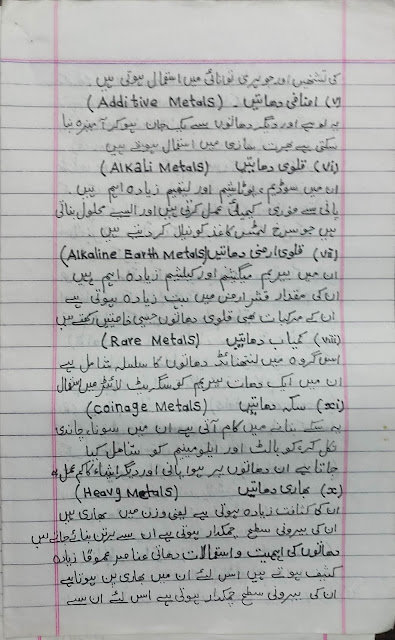 کی تشخیص اور جوہری توانائی میں استعمال ہوتی ہیں۔
(v) اضافی دھاتیں۔ (Additive Metals)
یہ لوہے اور دیگر دھاتوں سے یک جان ہو کر آمیزہ بنا
سکتی ہے بھرت سازی میں استعمال ہوتے ہیں
(vi) قلوی دھاتیں (Alkali Metals)
ان میں سوڈیم، پوٹاشیم اور لیتھیم زیادہ اہم ہیں۔
پانی سے فوری کیمیائی عمل کرتی ہیں اور ایسے محلول بناتی
ہیں جو سرخ لٹمس کاغذ کو نیلا کر دیتے ہیں۔
(vii) قلوی ارضی دھاتیں (Alkaline Earth Metals)
ان میں بیریم میگنیشیم اور کیلشیم زیادہ اہم ہیں
ان کی مقدار قشر ارض میں بہت زیادہ ہوتی ہے
ان کے مرکبات بھی قلوی دھاتوں جیسی خاصیتیں رکھتے ہیں
(viii) کمیاب دھاتیں (Rare Metals)
اس گروہ میں لینتھنائڈ دھاتوں کا سلسلہ شامل ہے
ان میں ایک دھات سیریم کو سگریٹ لائٹر میں استعمال
(xi) سکہ دھاتیں (Coinage Metals)
یہ سکے بنانے میں کام آتی ہے ان میں سونا، چاندی
نکل کرۃ کوبالٹ اور ایلومینیم کو شامل کیا
جاتا ہے ان دھاتوں پر ہوا پانی اور دیگر اشیاء کا کم عمل ہو
(x) بھاری دھاتیں (Heavy Metals)
ان کا کثافت زیادہ ہوتی ہے یعنی وزن میں بھاری ہیں
ان کی بیرونی سطح چمکدار ہوتی ہے ان سے برتن بنائے جاتے ہیں
دھاتوں کی اہمیت و استعمالات دھاتی عناصر عموماً زیادہ
کثیف ہوتے ہیں اس لئے ان میں بھاری پن ہوتا ہے
ان کی بیرونی سطح چمکدار ہوتی ہے اس لئے ان سے